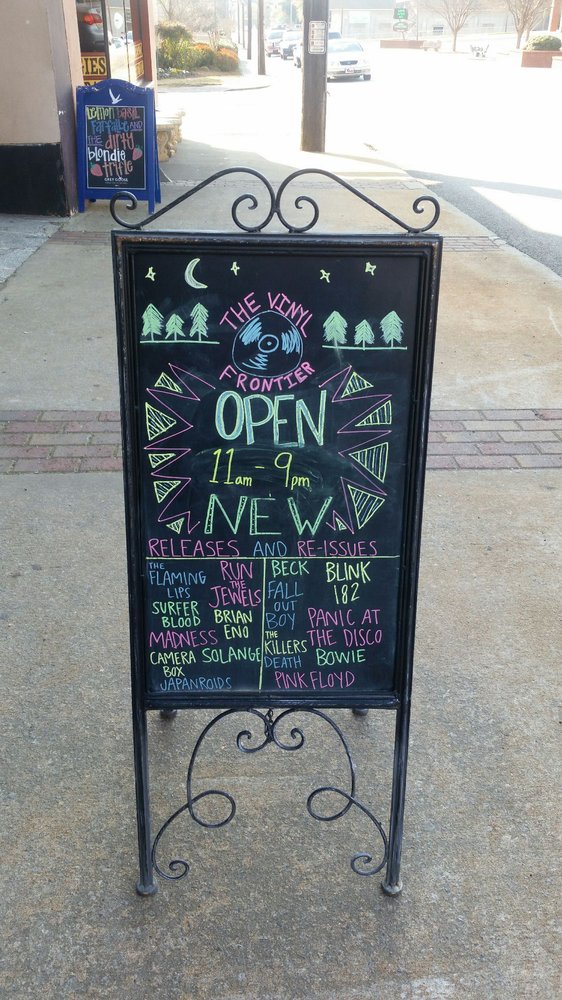 LEMON BASIL
FARFALLE AND
THE dirty
blondie
trifle
GREY GOOSE
THE VINYL
FRONTIER
OPEN
11am - 9pm
NEW
RELEASES AND RE-ISSUES
THE
FLAMING
LIPS
RUN
THE
JEWELS
SURFER
BLOOD
BRIAN
ENO
MADNESS
CAMERA
BOX
SOLANGE
JAPANROIDS
BECK
BLINK
182
FALL
OUT
BOY
PANIC AT
THE DISCO
THE
KILLERS
DEATH
BOWIE
PINK FLOYD